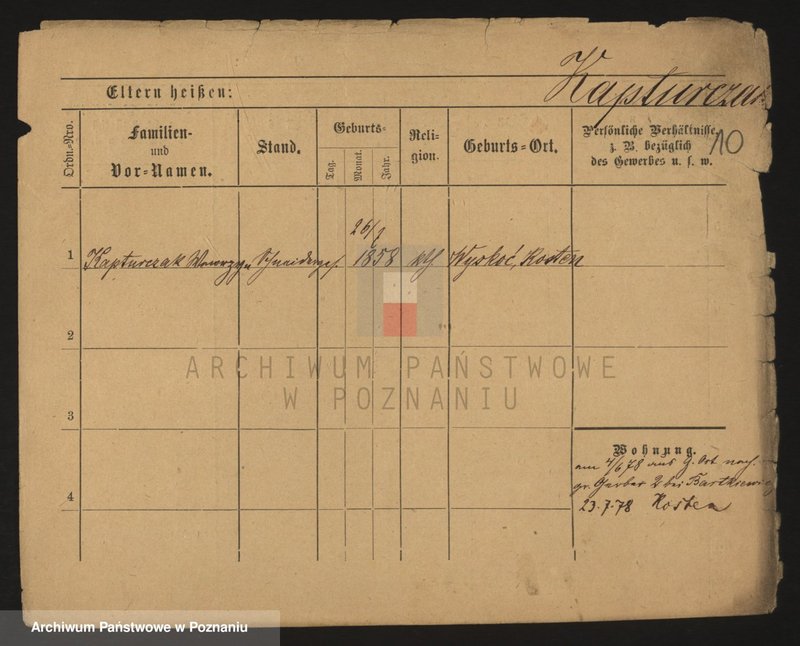 Kapturczak
Eltern heißen:
10
Ordn.-Nro.
Familien-
und
Vor-Namen.
Stand.
Geburts-
Tag.
Monat.
Jahr.
Reli-
gion.
Geburts-Ort.
Persönliche Verhältnisse
z. B. bezüglich
des Gewerbes u. s. w.
26/7
1 Kapturczak Wawrzyn Schneiderges. 1858 kth Wyskoć, Kosten
2
ARCHIWUM PAŃSTWOWE
W POZNANIU
3
Wohnung.
am 4/6 78 aus g. Ort nach
gr. Gerber 2 bei Bartkiewicz
4
23.7.78 Kosten
Archiwum Państwowe w Poznaniu